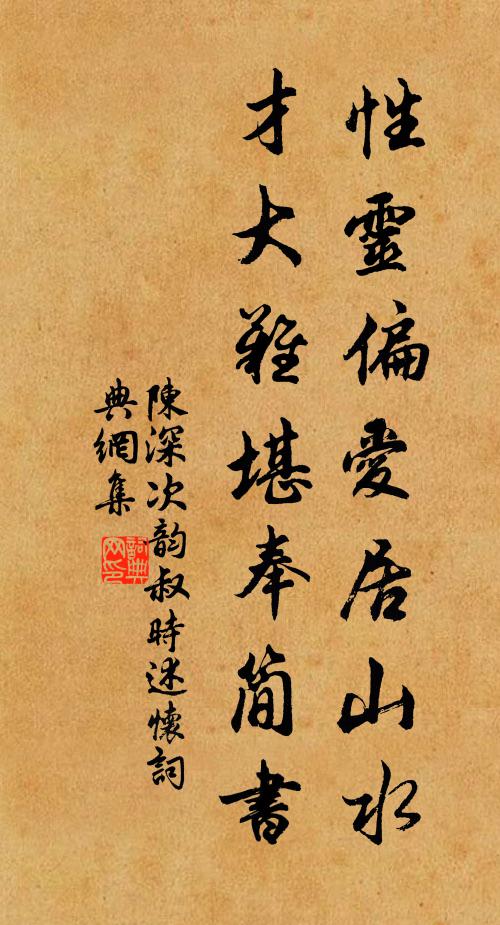 性靈偏愛居山水
才大難堪奉簡書
陳深次韵叔時述懷詞
典網集
詞典網印